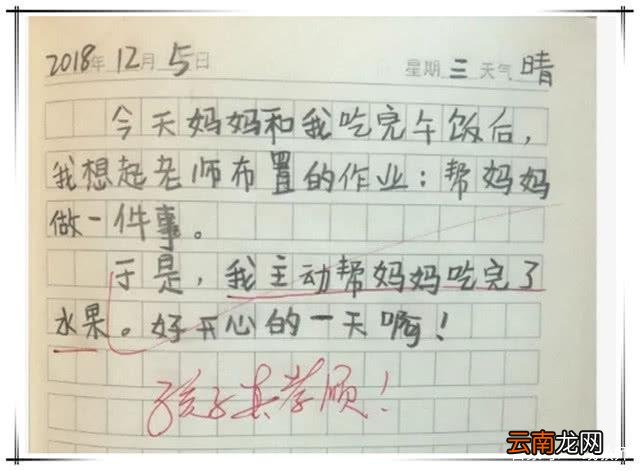 2018年12月5日 星期三 天气晴
今天妈妈和我吃完午饭后，
我想起老师布置的作业：帮妈妈
做一件事。
于是，我主动帮妈妈吃完了
水果。好开心的一天啊！
孩子真孝顺！
云南龙网